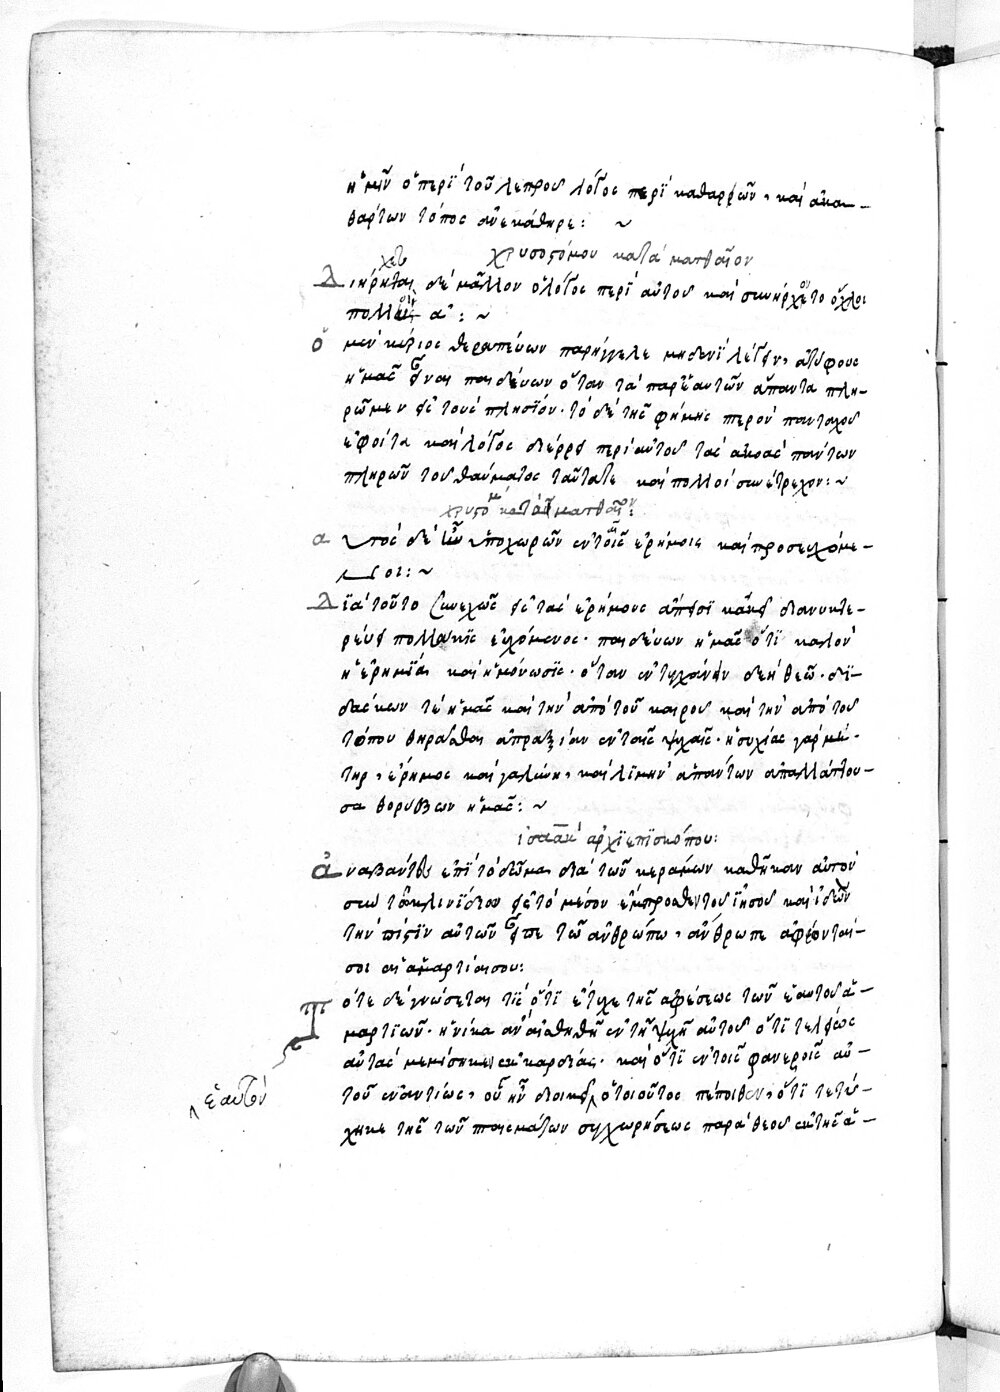 ἡμῖν ὁ περὶ τοῦ λεπροῦ λόγος περὶ καθαρῶν, καὶ ἀκα-
θάρτων τόπος ἀνεκάθηρε: ~
χρυσοστόμου κατὰ ματθαῖον
Διήρχετο δὲ μᾶλλον ὁ λόγος περὶ αὐτοῦ καὶ συνήρχοντο ὄχλοι
πολλοὶ: ~
ὁ μὲν κύριος θεραπεύων παρήγγελε μηδενὶ λέγειν, ἀτύφους
ἡμᾶς εἶναι παιδεύων ὅταν τὰ παρ' ἑαυτῶν ἅπαντα πλη-
ρῶμεν εἰς τοὺς πλησίον· τὸ δὲ τῆς φήμης πτερὸν πανταχοῦ
ἐφοίτα καὶ λόγος διέρρει περὶ αὐτοῦ τὰς ἀκοὰς πάντων
πληρῶν τοῦ θαύματος καὶ πολλοὶ συνέτρεχον: ~
αὐτὸς δὲ ἦν ὑποχωρῶν ἐν ταῖς ἐρήμοις καὶ προσευχόμε-
νος: ~
Διὰ τοῦτο συνεχῶς εἰς τὰς ἐρήμους ἄπεισι κἀκεῖ διανυκτε-
ρεύει πολλάκις εὐχόμενος· παιδεύων ἡμᾶς ὅτι καλὸν
ἡ ἐρημία καὶ ἡ μόνωσις· ὅταν ἐντυγχάνειν δέῃ θεῷ· δι-
δάσκων τὲ ἡμᾶς καὶ τὴν ἀπὸ τοῦ καιροῦ καὶ τὴν ἀπὸ τοῦ
τόπου θηρᾶσθαι ἀπραξίαν ἐν ταῖς ψυχαῖς· ἡσυχίας γὰρ μή-
τηρ, ἔρημος καὶ γαλήνη, καὶ λιμὴν ἁπάντων ἀπαλλάττου-
σα θορύβων ἡμᾶς: ~
ἰσαὰκ ἀρχιεπισκόπου:
ἀναβάντες ἐπὶ τὸ δῶμα διὰ τῶν κεράμων καθῆκαν αὐτὸν
σὺν τῷ κλινιδίῳ εἰς τὸ μέσον ἔμπροσθεν τοῦ ἰησοῦ καὶ ἰδὼν
τὴν πίστιν αὐτῶν εἶπε τῷ ἀνθρώπῳ, ἄνθρωπε ἀφέωνταί-
σοι αἱ ἁμαρτίαι σου:
Πότε δὲ γνώσεταί τις ὅτι ἔτυχε τῆς ἀφέσεως τῶν ἑαυτοῦ ἁ-
μαρτιῶν· ἡνίκα ἂν αἰσθηθῇ ἐν τῇ ψυχῇ αὐτοῦ ὅτι τελείως
αὐτὰς μεμίσηκεν ἐκ καρδίας· καὶ ὅτι ἐν τοῖς φανεροῖς αὐ-
τοῦ ἐναντίως, οὗ ἦν διοικεῖ ὁ τοιοῦτος πέποιθεν, ὅτι τετύ-
ἑαυτὸν
χηκε τῆς τῶν πταισμάτων συγχωρήσεως παρὰ θεοῦ ἐκ τῆς ἁ-